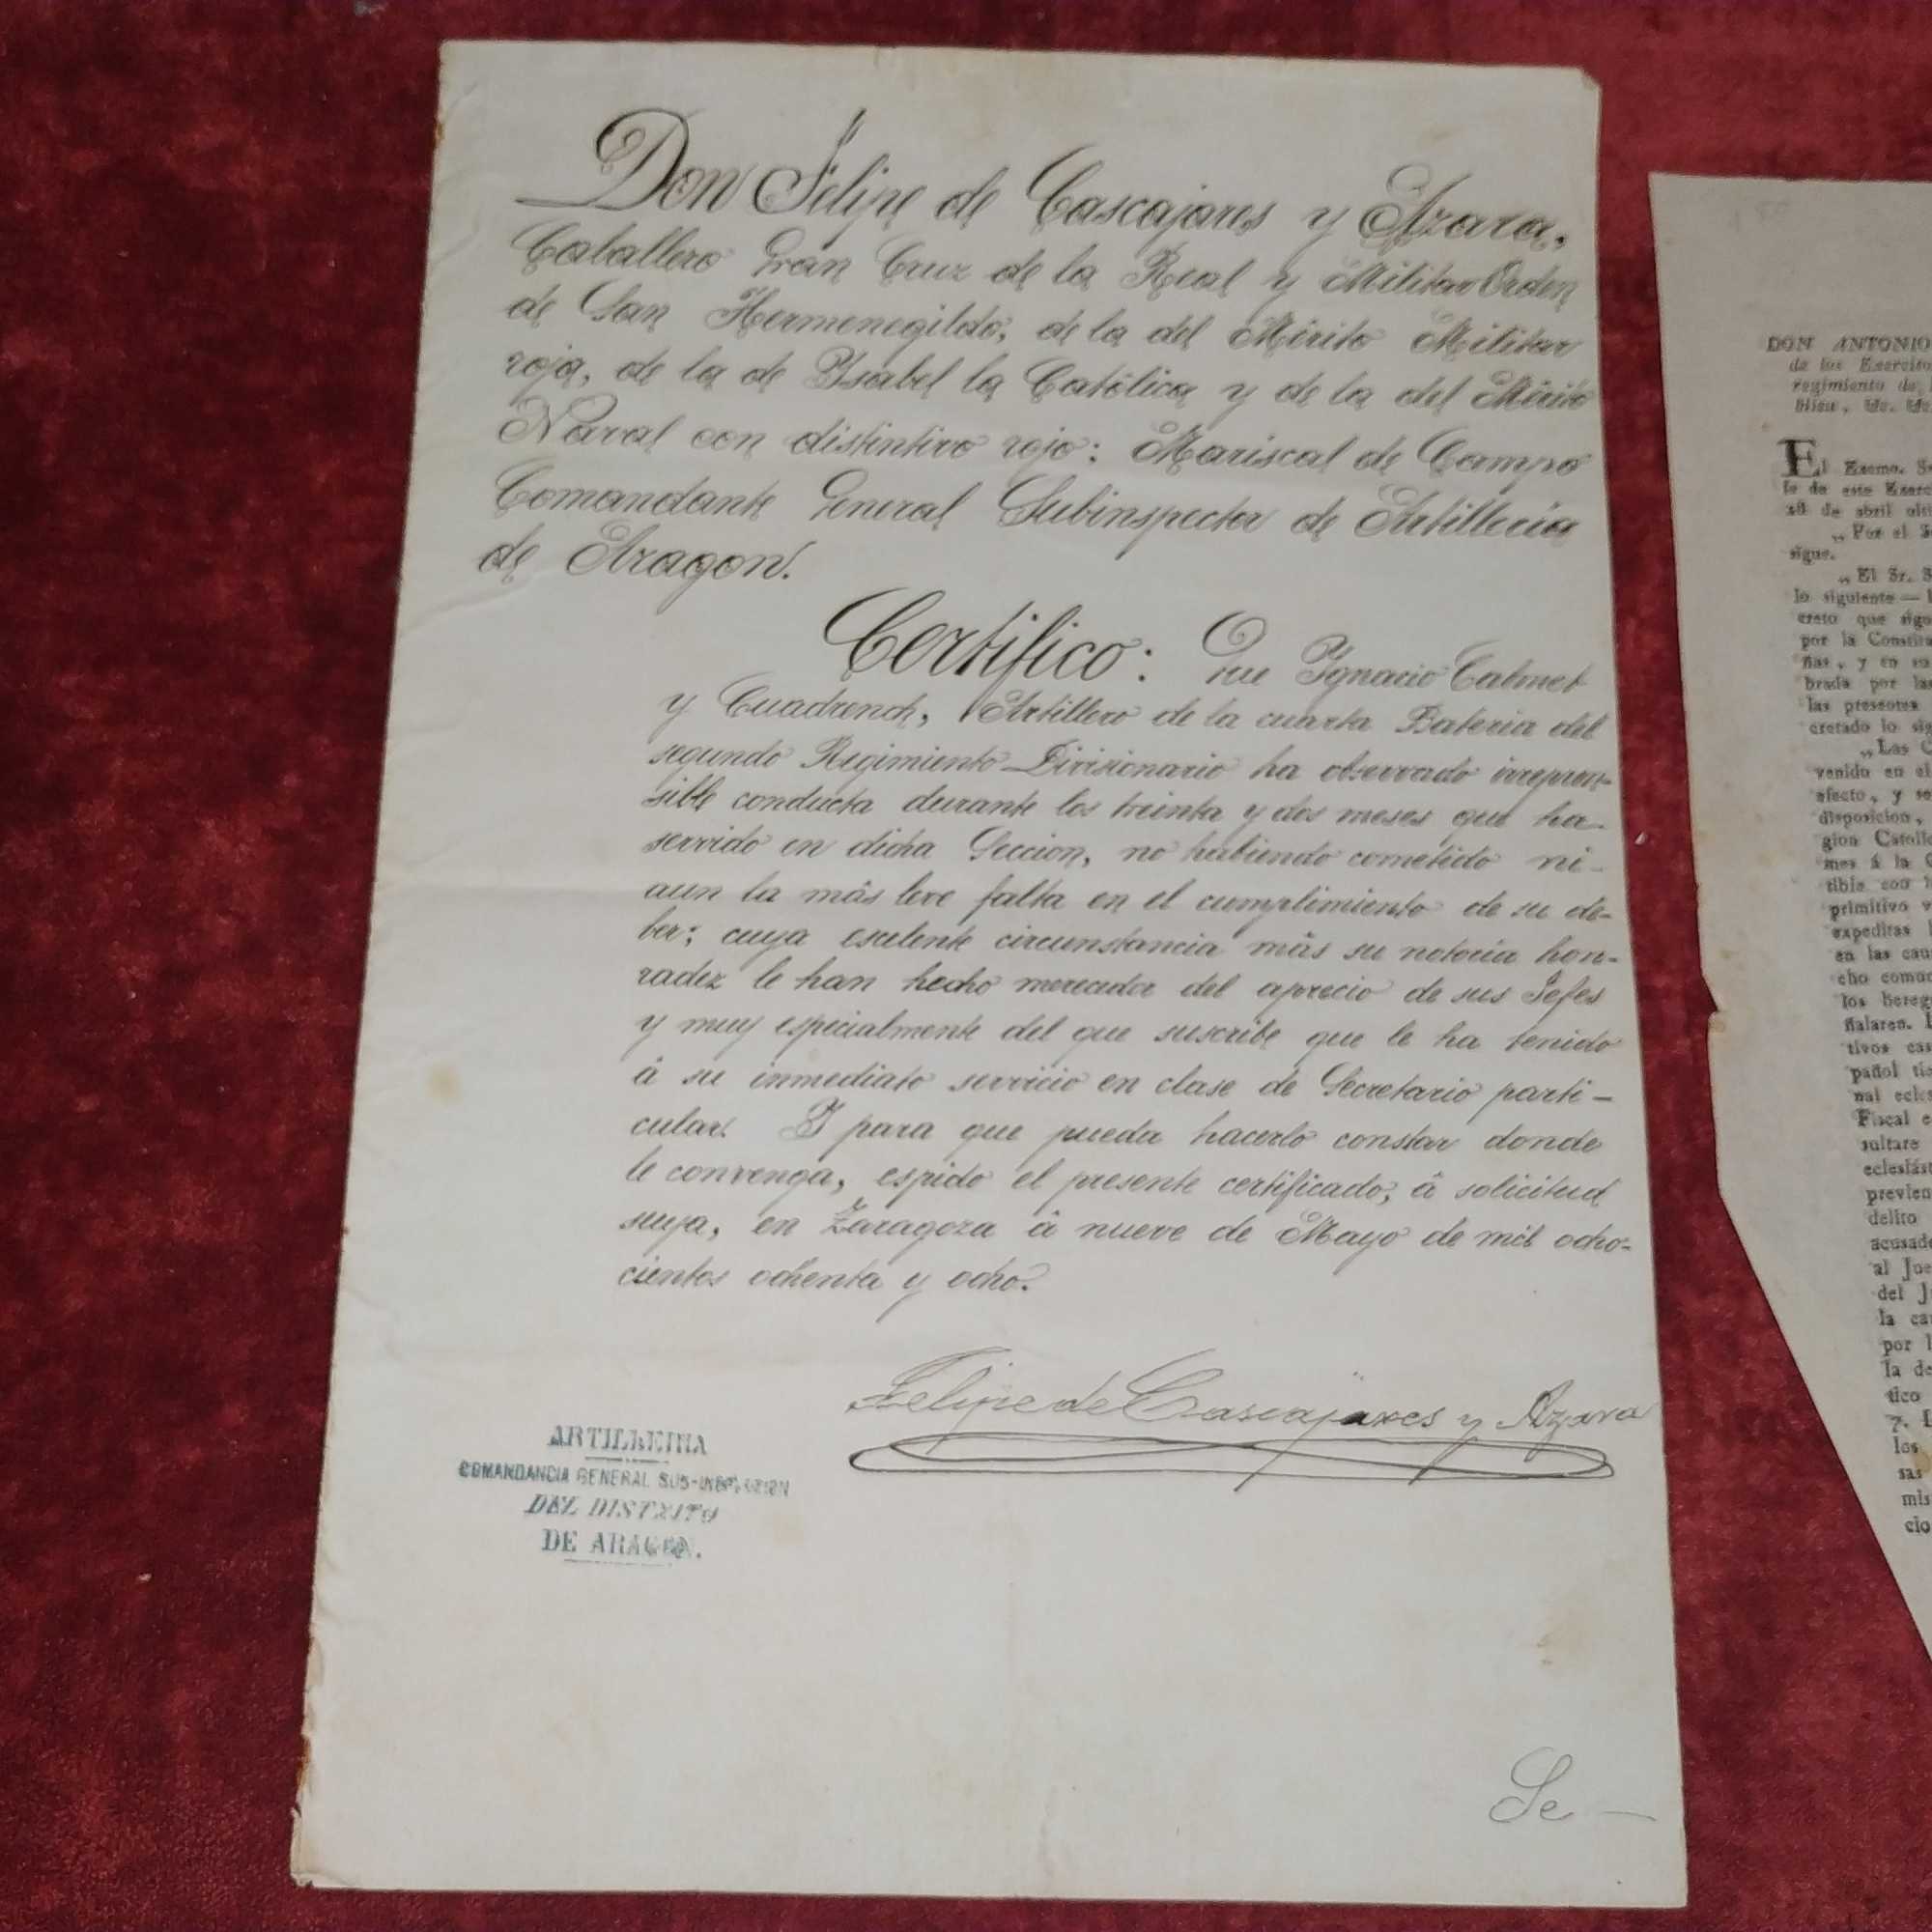 Don Felipe de Cascajares y Azara,
Caballero Gran Cruz de la Real y Militar Orden
de San Hermenegildo, de la del Mérito Militar
roja, de la de Ysabel la Católica y de la del Mérito
Naval con distintivo rojo: Mariscal de Campo
Comandante General Subinspector de Artilleria
de Aragon.
Certifico: Que Ygnacio Calmet
y Cuadrench, Artillero de la cuarta Bateria del
segundo Regimiento Divisionario ha observado irrepren-
sible conducta durante los treinta y dos meses que ha
servido en dicha Seccion, no habiendo cometido ni-
aun la más leve falta en el cumplimiento de su de-
ber; cuya escelente circunstancia más su notoria hon-
radez le han hecho merecedor del aprecio de sus Jefes
y muy especialmente del que suscribe que le ha tenido
á su inmediato servicio en clase de Secretario parti-
cular. Y para que pueda hacerlo constar donde
le convenga, espido el presente certificado, á solicitud
suya, en Zaragoza á nueve de Mayo de mil ocho-
cientos ochenta y ocho.
Felipe de Cascajares y Azara
ARTILLERIA
COMANDANCIA GENERAL SUB-INSPECCION
DEL DISTRITO
DE ARAGON.
Se—
DON ANTONIO
de los Exercitos
regimiento de
El Excmo. S
de abril
„ Por el S
sigue.
„ El Sr. S
lo siguiente —
creto que sigu
por la Constitu
ñas, y en su
brada por las
las presentes
cretado lo sig
„ Las C
venido en el
efecto, y se
disposicion,
gion Catolic
mes á la C
tible con l
primitivo v
expeditas l
en las cau
cho comun
los herege
ñalaren.
tivos cas
pañol tie
nal ecles
Fiscal e
sultare
eclesiást
previen
delito
acusado
al Jue
del J
la cau
por l
la de
tico
7. L
los
sas
mis
cio